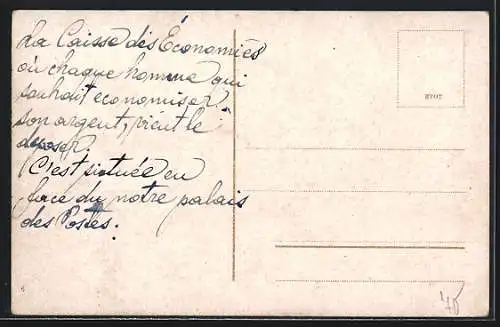 La Caisse des Économies
où chaque homme qui
souhait economiser
son argent, vient le
deposer.
C'est située en
face du notre palais
des Postes.
8707